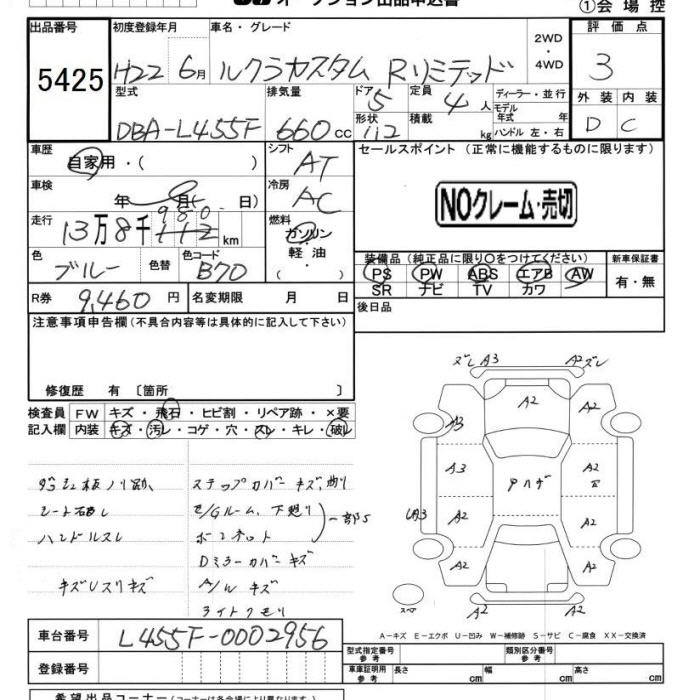 オークション出品申込書
①会場控
出品番号 初度登録年月 車名・グレード 2WD 評価点
5425 H22 6月 ルクラカスタム Rリミテッド ・4WD 3
型式 排気量 ドア 5 定員 4人 ディーラー・並行 外装 内装
DBA-L455F 660cc 形状 積載 kg モデル年式 年 D C
ハンドル 左・右
車歴 シフト セールスポイント (正常に機能するものに限ります)
自家用・( ) AT
車検 年 月( 日) 冷房 AC NOクレーム・売切
走行 13万8千980 km 燃料 ガソリン・軽油・( )
色 ブルー 色替 色コード B70
装備品 (純正品に限り○をつけてください) 新車保証書
PS PW ABS エアB AW 有・無
SR ナビ TV カワ
R券 9,460円 名変期限 月 日 後日品
注意事項申告欄 (不具合内容等は具体的に記入して下さい)
修復歴 有 〔箇所 〕
検査員 FW キズ・飛石・ヒビ割・リペア跡・×要
記入欄 内装 キズ・汚レ・コゲ・穴・スレ・キレ・破レ
ステップカバーキズ
シート破レ ルーム、下廻り 一部S
ハンドルスレ ボンネット
Dミラーカバーキズ
キズUスリキズ A/W キズ
ライトクモリ
ズレ A3 A2 ズレ
A2
A3 A2
A3 A2
A3 A2 A2
A2 A2
A2
A-キズ E-エクボ U-凹み W-補修跡 S-サビ C-腐食 XX-交換済
車台番号 L455F-0002956
型式指定番号 参考 類別区分番号 参考
登録番号 車庫証明用 参考 長さ cm 幅 cm 高さ cm
希望出品コーナー (コーナーは各会場により異なります)